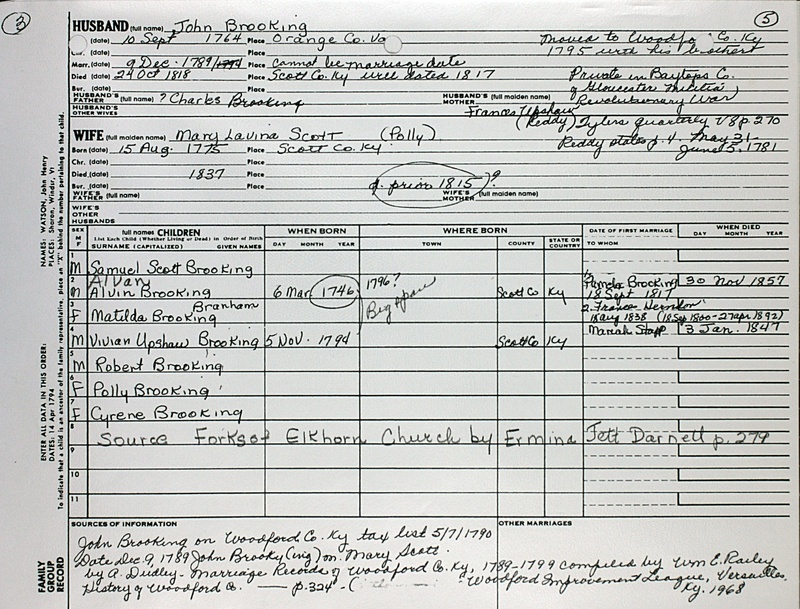 3
5
HUSBAND (full name) John Brooking
(date) 10 Sept 1764 Place Orange Co. Va
Moved to Woodfo Co. Ky
Chr. (date) Place
1795 with his brothers
Marr. (date) 9 Dec. 1789/1794 Place cannot be marriage date
Died (date) 24 Oct 1818 Place Scott Co. Ky will dated 1817
Private in Baytops Co.
Bur. (date) Place
of Gloucester Militia,
HUSBAND'S FATHER (full name) ? Charles Brooking
HUSBAND'S MOTHER (full maiden name) Frances Upshaw
Revolutionary War
HUSBAND'S OTHER WIVES
(Reddy) Tylers quarterly V8 p. 270
WIFE (full maiden name) Mary Lavina Scott (Polly)
Reddy states p. 4. May 31-
Born (date) 15 Aug. 1775 Place Scott Co. Ky
June 5, 1781
Chr. (date) Place
Died (date) 1837 Place
Bur. (date) Place d. prior 1815)?
WIFE'S FATHER (full name)
WIFE'S MOTHER (full maiden name)
WIFE'S OTHER HUSBANDS
SEX M F
full names CHILDREN
List Each Child (Whether Living or Dead) in Order of Birth
SURNAME (CAPITALIZED) GIVEN NAMES
WHEN BORN
DAY MONTH YEAR
WHERE BORN
TOWN COUNTY STATE OR COUNTRY
DATE OF FIRST MARRIAGE
TO WHOM
WHEN DIED
DAY MONTH YEAR
1
M Samuel Scott Brooking
2 Alvan
M Alvin Brooking 6 Mar. 1746 1796? Scott Co Ky
1. Pamela Brooking 30 Nov 1857
18 Sept 1817
3 Branham
F Matilda Brooking
2. France Herndon
18 Aug 1838 (18 Sep 1800-27 Apr 1892)
4
M Vivian Upshaw Brooking 5 Nov. 1794 Scott Co Ky Mariah Stapp 3 Jan. 1847
5
M Robert Brooking
6
F Polly Brooking
7
F Cyrene Brooking
8 Source Forks of Elkhorn Church by Ermina Jett Darnell p. 279
9
10
11
SOURCES OF INFORMATION
OTHER MARRIAGES
John Brooking on Woodford Co. Ky tax list 5/7/1790
Date Dec. 9, 1789 John Brooky (ing) on Mary Scott.
by A. Dudley - Marriage Records of Woodford Co. Ky, 1789-1799 compiled by Wm E. Railey
History of Woodford Co. p. 324 - ( Woodford Improvement League, Versailles,
Ky. 1968
NAMES: WATSON, John Henry
PLACES: Sharon, Windsr, Vt
ENTER ALL DATA IN THIS ORDER:
DATES: 14 Apr 1794
To indicate that a child is an ancestor of the family representative, place an "X" behind the number pertaining to that child.
FAMILY GROUP RECORD